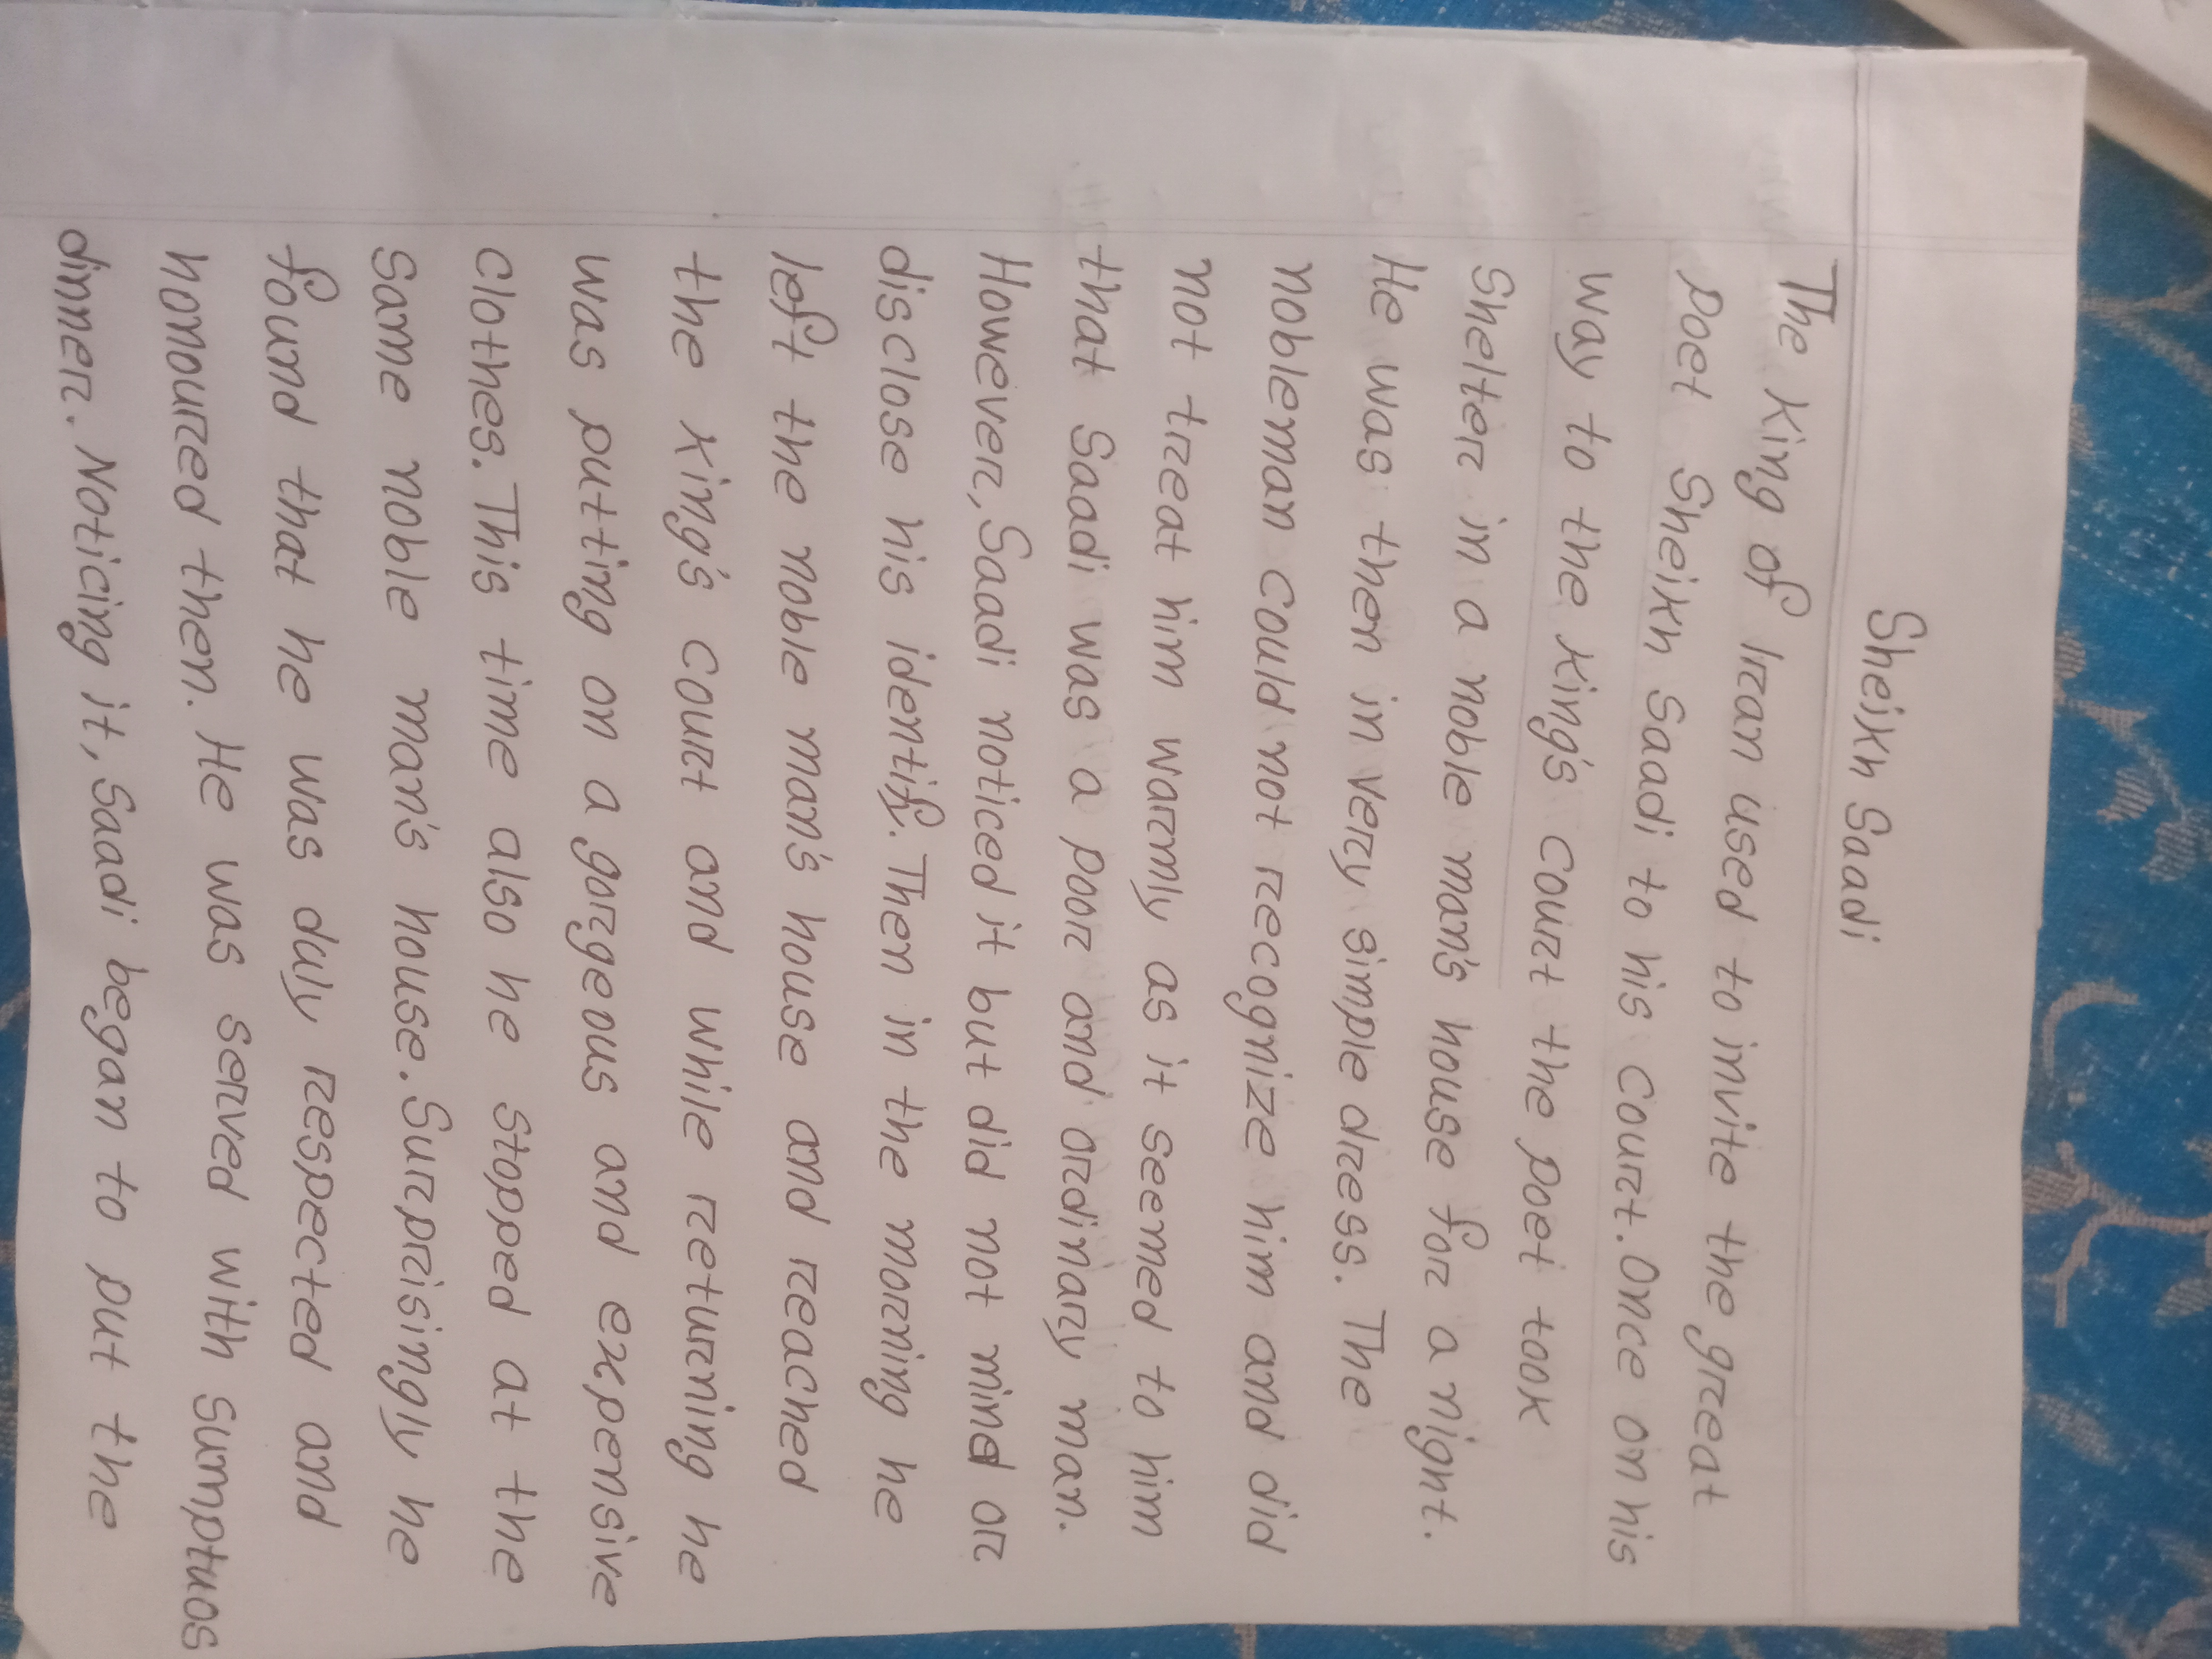 Sheikh Saadi
The King of Iran used to invite the great
poet Sheikh Saadi to his court. Once on his
way to the king's court the poet took
Shelter in a noble man's house for a night.
He was then in very simple dress. The
nobleman could not recognize him and did
not treat him warmly as it seemed to him
that Saadi was a poor and ordinary man.
However, Saadi noticed it but did not mind or
disclose his identify. Then in the morning he
left the noble man's house and reached
the king's court and while returning he
was putting on a gorgeous and expensive
clothes. This time also he stopped at the
Same noble man's house. Surprisingly he
found that he was duly respected and
honoured then. He was served with sumptuos
dinner. Noticing it, Saadi began to put the